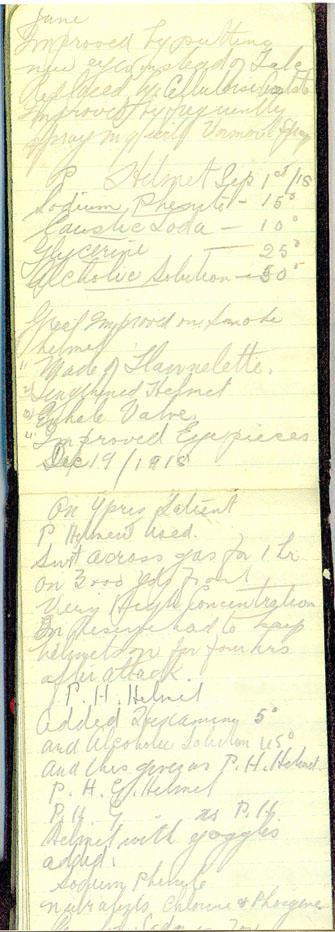 June
Improved by putting
new eyes instead of Talc
Replaced by Cellulose
Improved by frequently
spraying with Vermorel Spray
P Helmet Sep 1st/15
Sodium Phenylet - 15°
Caustic Soda - 10°
Glycerine - 25°
Alcholic Solution - 50°
Great Improved on Smoke
helmet
1) Made of Flannelette.
2) Lengthened Helmet
3) Exhale Valve.
4) Improved Eyepieces
Dec 19/1915
On Ypres Salient
P Helmet Used.
Sent across gas for 1 hr
on 3000 yds front
Very High Concentration
In reserve had to keep
helmets on for four hrs
after attack.
P. H. Helmet
added Hexamine 5°
and Alcoholic Solution 45°
and this gives us P. H. Helmet
P. H. G. Helmet
P. H. G. as P.H.
Helmet with goggles
added.
Sodium Phenyle
nutralizes Chlorine & Phosgene